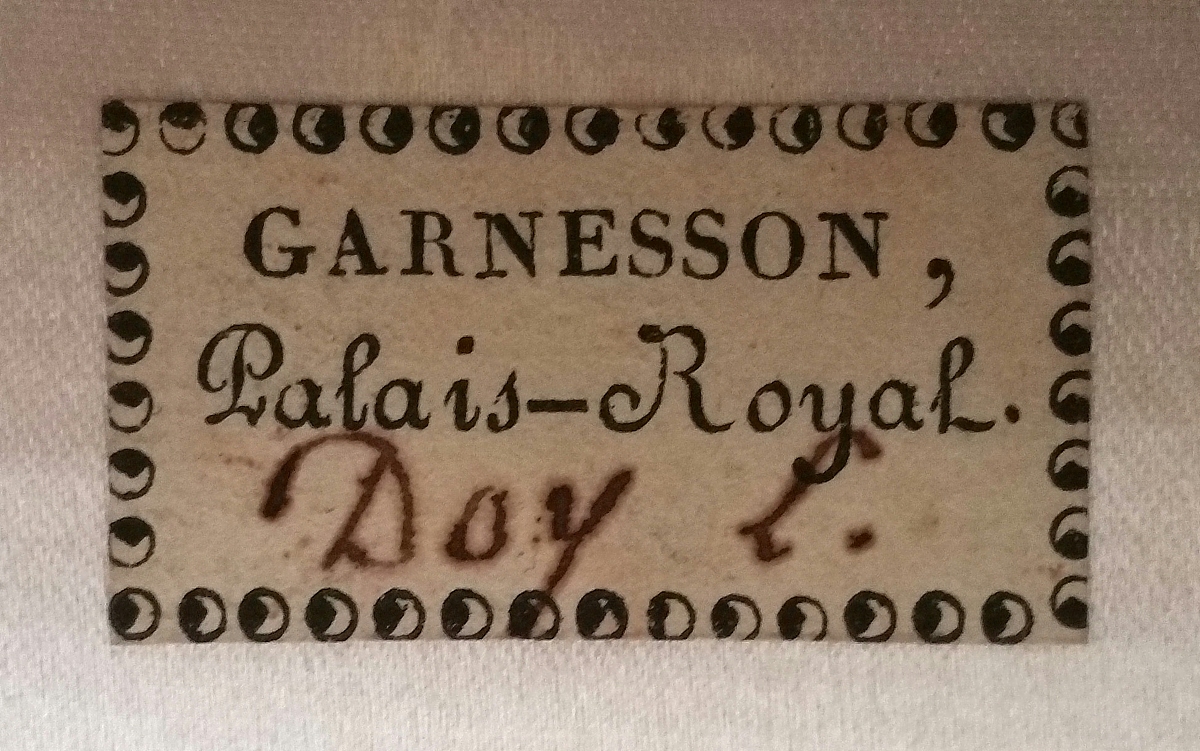 GARNESSON,
Palais-Royal.
Doy L.